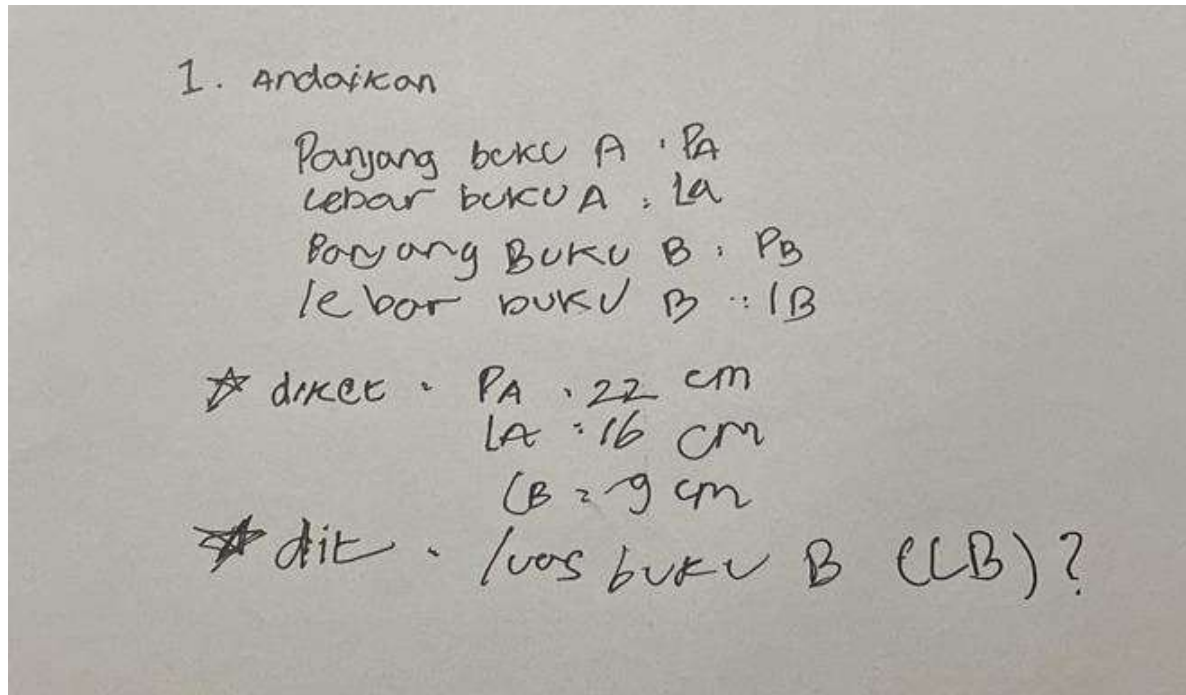 1. Andaikan
Panjang buku A : PA
Lebar buku A : La
Panjang Buku B : PB
lebar buku B : lB
☆ diket : PA : 22 cm
lA : 16 cm
lB : 9 cm
☆ dit : luas buku B (LB) ?